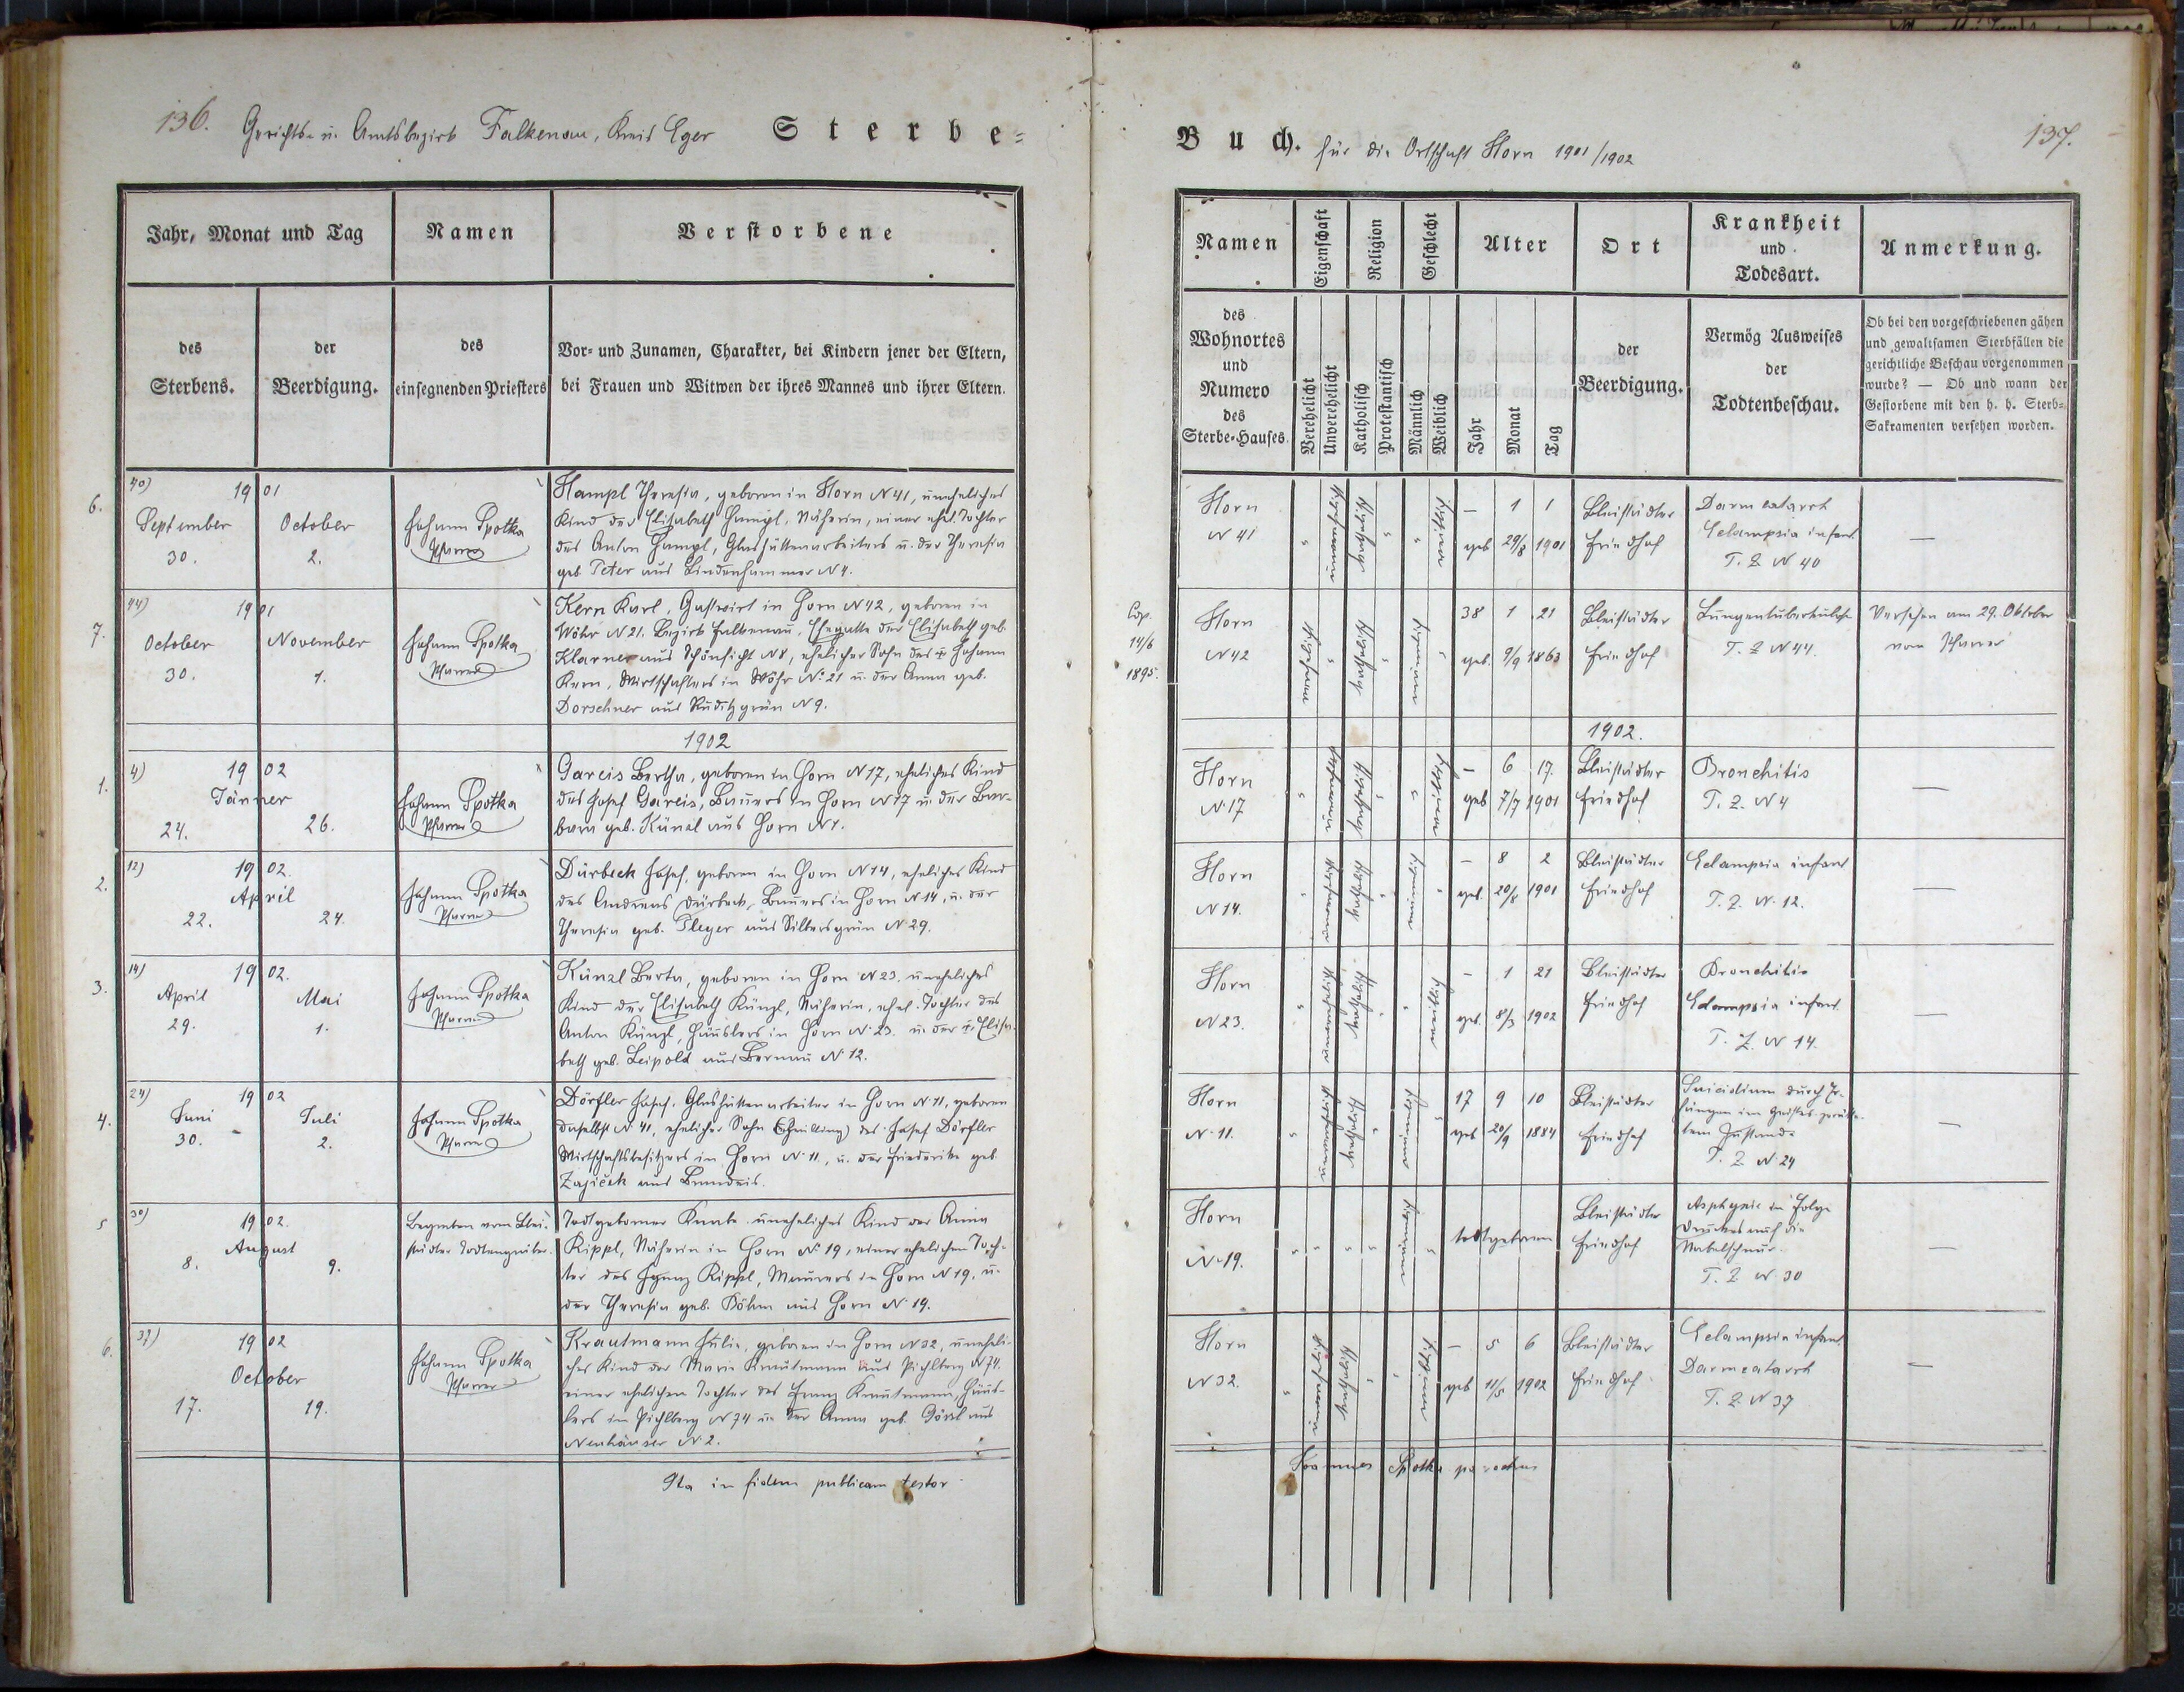 136. Gerichts- u. Amtsbezirk Falkenau, Kreis Eger Sterbe=
Jahr, Monat und Tag
Namen
Verstorbene
des
Sterbens.
der
Beerdigung.
des
einsegnenden Priesters
Vor- und Zunamen, Charakter, bei Kindern jener der Eltern,
bei Frauen und Witwen der ihres Mannes und ihrer Eltern.
6.
40) 1901
September
30.
October
2.
Johann Spotka
Pfarrer
Hampl Theresia, geboren in Horn N 41, uneheliches
Kind der Elisabeth Hampl, Näherin, einer ehel. Tochter
des Anton Hampl, Glashüttenarbeiters u. der Theresia
geb. Peter aus Lindenhammer N 4.
7.
44) 1901
October
30.
November
1.
Johann Spotka
Pfarrer
Kern Karl, Gastwirt in Horn N 42, geboren in
Wöhr N 21. Bezirk Falkenau, Ehegatte der Elisabeth geb.
Klarner aus Schönficht N 8, ehelicher Sohn des † Johann
Kern, Wirtschafters in Wöhr N. 21 u. der Anna geb.
Dorschner aus Ruditzgrün N 9.
1902
1.
4) 1902
Jänner
24. 26.
Johann Spotka
Pfarrer
Gareis Bertha, geboren in Horn N 17, eheliches Kind
des Josef Gareis, Bauers in Horn N 17 u. der Bar-
bara geb. Künzl aus Horn N 4.
2.
12) 1902.
April
22. 24.
Johann Spotka
Pfarrer
Dürbeck Josef, geboren in Horn N 14, eheliches Kind
des Andreas Dürbeck, Bauers in Horn N 14, u. der
Theresia geb. Pleyer aus Silbersgrün N 29.
3.
14) 1902.
April
29.
Mai
1.
Johann Spotka
Pfarrer
Künzl Berta, geboren in Horn N 23, uneheliches
Kind der Elisabeth Künzl, Näherin, ehel. Tochter des
Anton Künzl, Häuslers in Horn N. 23. u. der † Elisa-
beth geb. Leipold aus Bernau N 12.
4.
24) 1902
Juni
30.
Juli
2.
Johann Spotka
Pfarrer
Dörfler Josef, Glashüttenarbeiter in Horn N. 11, geboren
daselbst N. 41, ehelicher Sohn (Zwilling) des Josef Dörfler
Wirtschaftsbesitzers in Horn N. 11., u. der Friederike geb.
Zajiček aus
5
30) 1902.
August
8. 9.
Begraben vom Blei-
städter Todtengräber.
Todtgeborner Knabe uneheliches Kind der Anna
Rippl, Näherin in Horn N. 19, einer ehelichen Toch-
ter des Ignaz Rippl, Maurers in Horn N 19, u.
der Theresia geb. Böhm aus Horn N. 19.
6.
37) 1902
October
17. 19.
Johann Spotka
Pfarrer
Krautmann Julie, geboren in Horn N 32, uneheli-
ches Kind der Maria Krautmann aus Pichlberg N 74.
einer ehelichen Tochter des Franz Krautmann, Häus-
lers in Pichlberg N 74 u. der Anna geb. aus
Neuhäuser N. 2.
Ita in fidem publicam testor
Buch. für die Ortschaft Horn 1901/1902 137.
Namen
Eigenschaft
Religion
Geschlecht
Alter
Ort
Krankheit
und
Todesart.
Anmerkung.
des
Wohnortes
und
Numero
des
Sterbe-Hauses.
Verehelicht
Unverehelicht
Katholisch
Protestantisch
Männlich
Weiblich
Jahr
Monat
Tag
der
Beerdigung.
Vermög Ausweises
der
Todtenbeschau.
Ob bei den vorgeschriebenen gähen
und gewaltsamen Sterbfällen die
gerichtliche Beschau vorgenommen
wurde? — Ob und wann der
Gestorbene mit den h. h. Sterb=
Sakramenten versehen worden.
Horn
N 41
— 1 1
geb. 29/8 1901
Bleistädter
Friedhof
Darmcatarrh
Eclampsia infant.
T. Z. N 40
—
Cop.
14/6
1895.
Horn
N 42
38 1 21
geb. 9/9 1863
Bleistädter
Friedhof
Lungentuberkulose
T. Z. N 44.
Versehen am 29. Oktober
vom Pfarrer
1902.
Horn
N. 17
— 6 17.
geb. 7/7 1901
Bleistädter
Friedhof
Bronchitis
T. Z. N 4
—
Horn
N 14.
— 8 2
geb. 20/8 1901
Bleistädter
Friedhof
Eclampsia infant
T. Z. N. 12.
—
Horn
N 23.
— 1 21
geb. 8/3 1902
Bleistädter
Friedhof
Bronchitis
Eclampsia infant.
T. Z. N 14.
—
Horn
N. 11.
17 9 10
geb. 20/9 1884
Bleistädter
Friedhof
Suicidium durch Er-
hängen im Geistes-zerrütte-
tem Zustande
T. Z. N. 24
—
Horn
N. 19.
todtgeboren
Bleistädter
Friedhof
Asphyxie in Folge
Druckes auf die
Nabelschnur.
T. Z. N. 30
—
Horn
N 32.
— 5 6
geb. 11/5 1902
Bleistädter
Friedhof
Eclampsia infant.
Darmcatarrh
T. Z. N 37
—
Joannes Spotka parochus